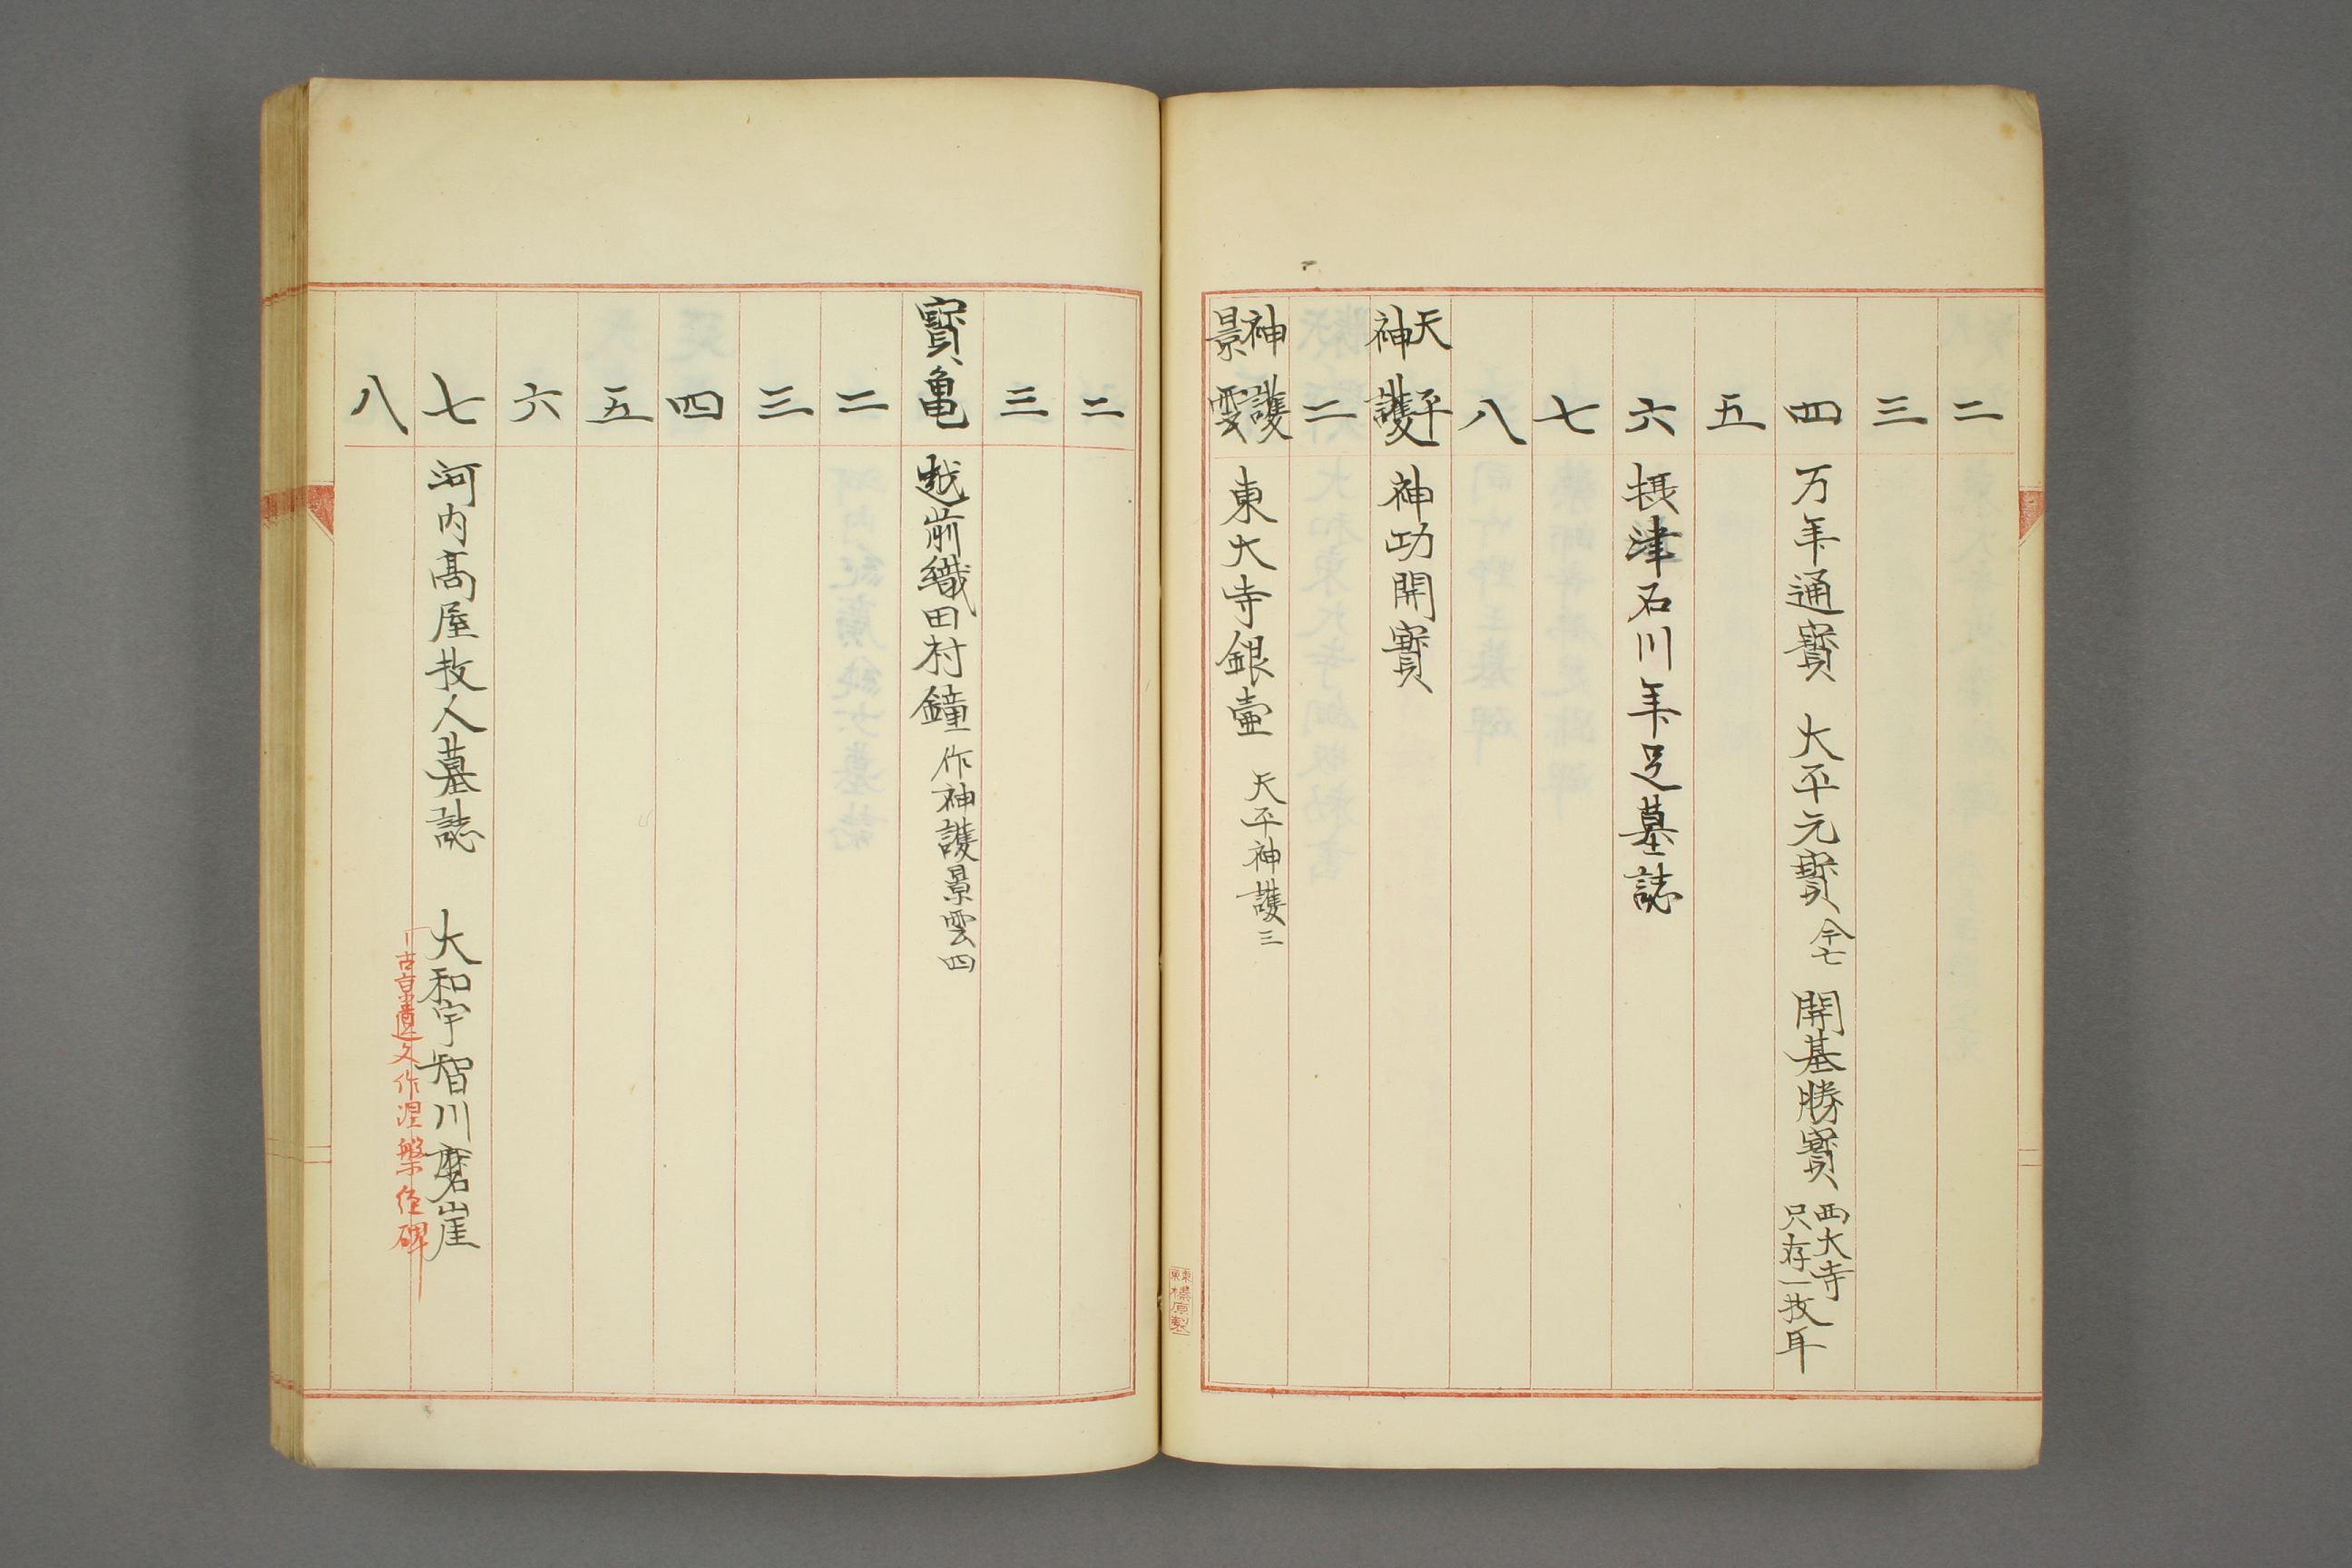 二
三
四 万年通寳 大平元寳 今七 開基勝寳 西大寺
只存一枚耳
五
六 摂津石川年足墓誌
七
八
天平
神護 神功開寳
二
神護
景雲 東大寺銀壷 天平神護三
二
三
寳亀 越前織田村鐘 作神護景雲四
二
三
四
五
六
七 河内高屋枚人墓誌 大和宇智川磨崖
「古京遺文作涅槃經碑
八
東京
榛原製